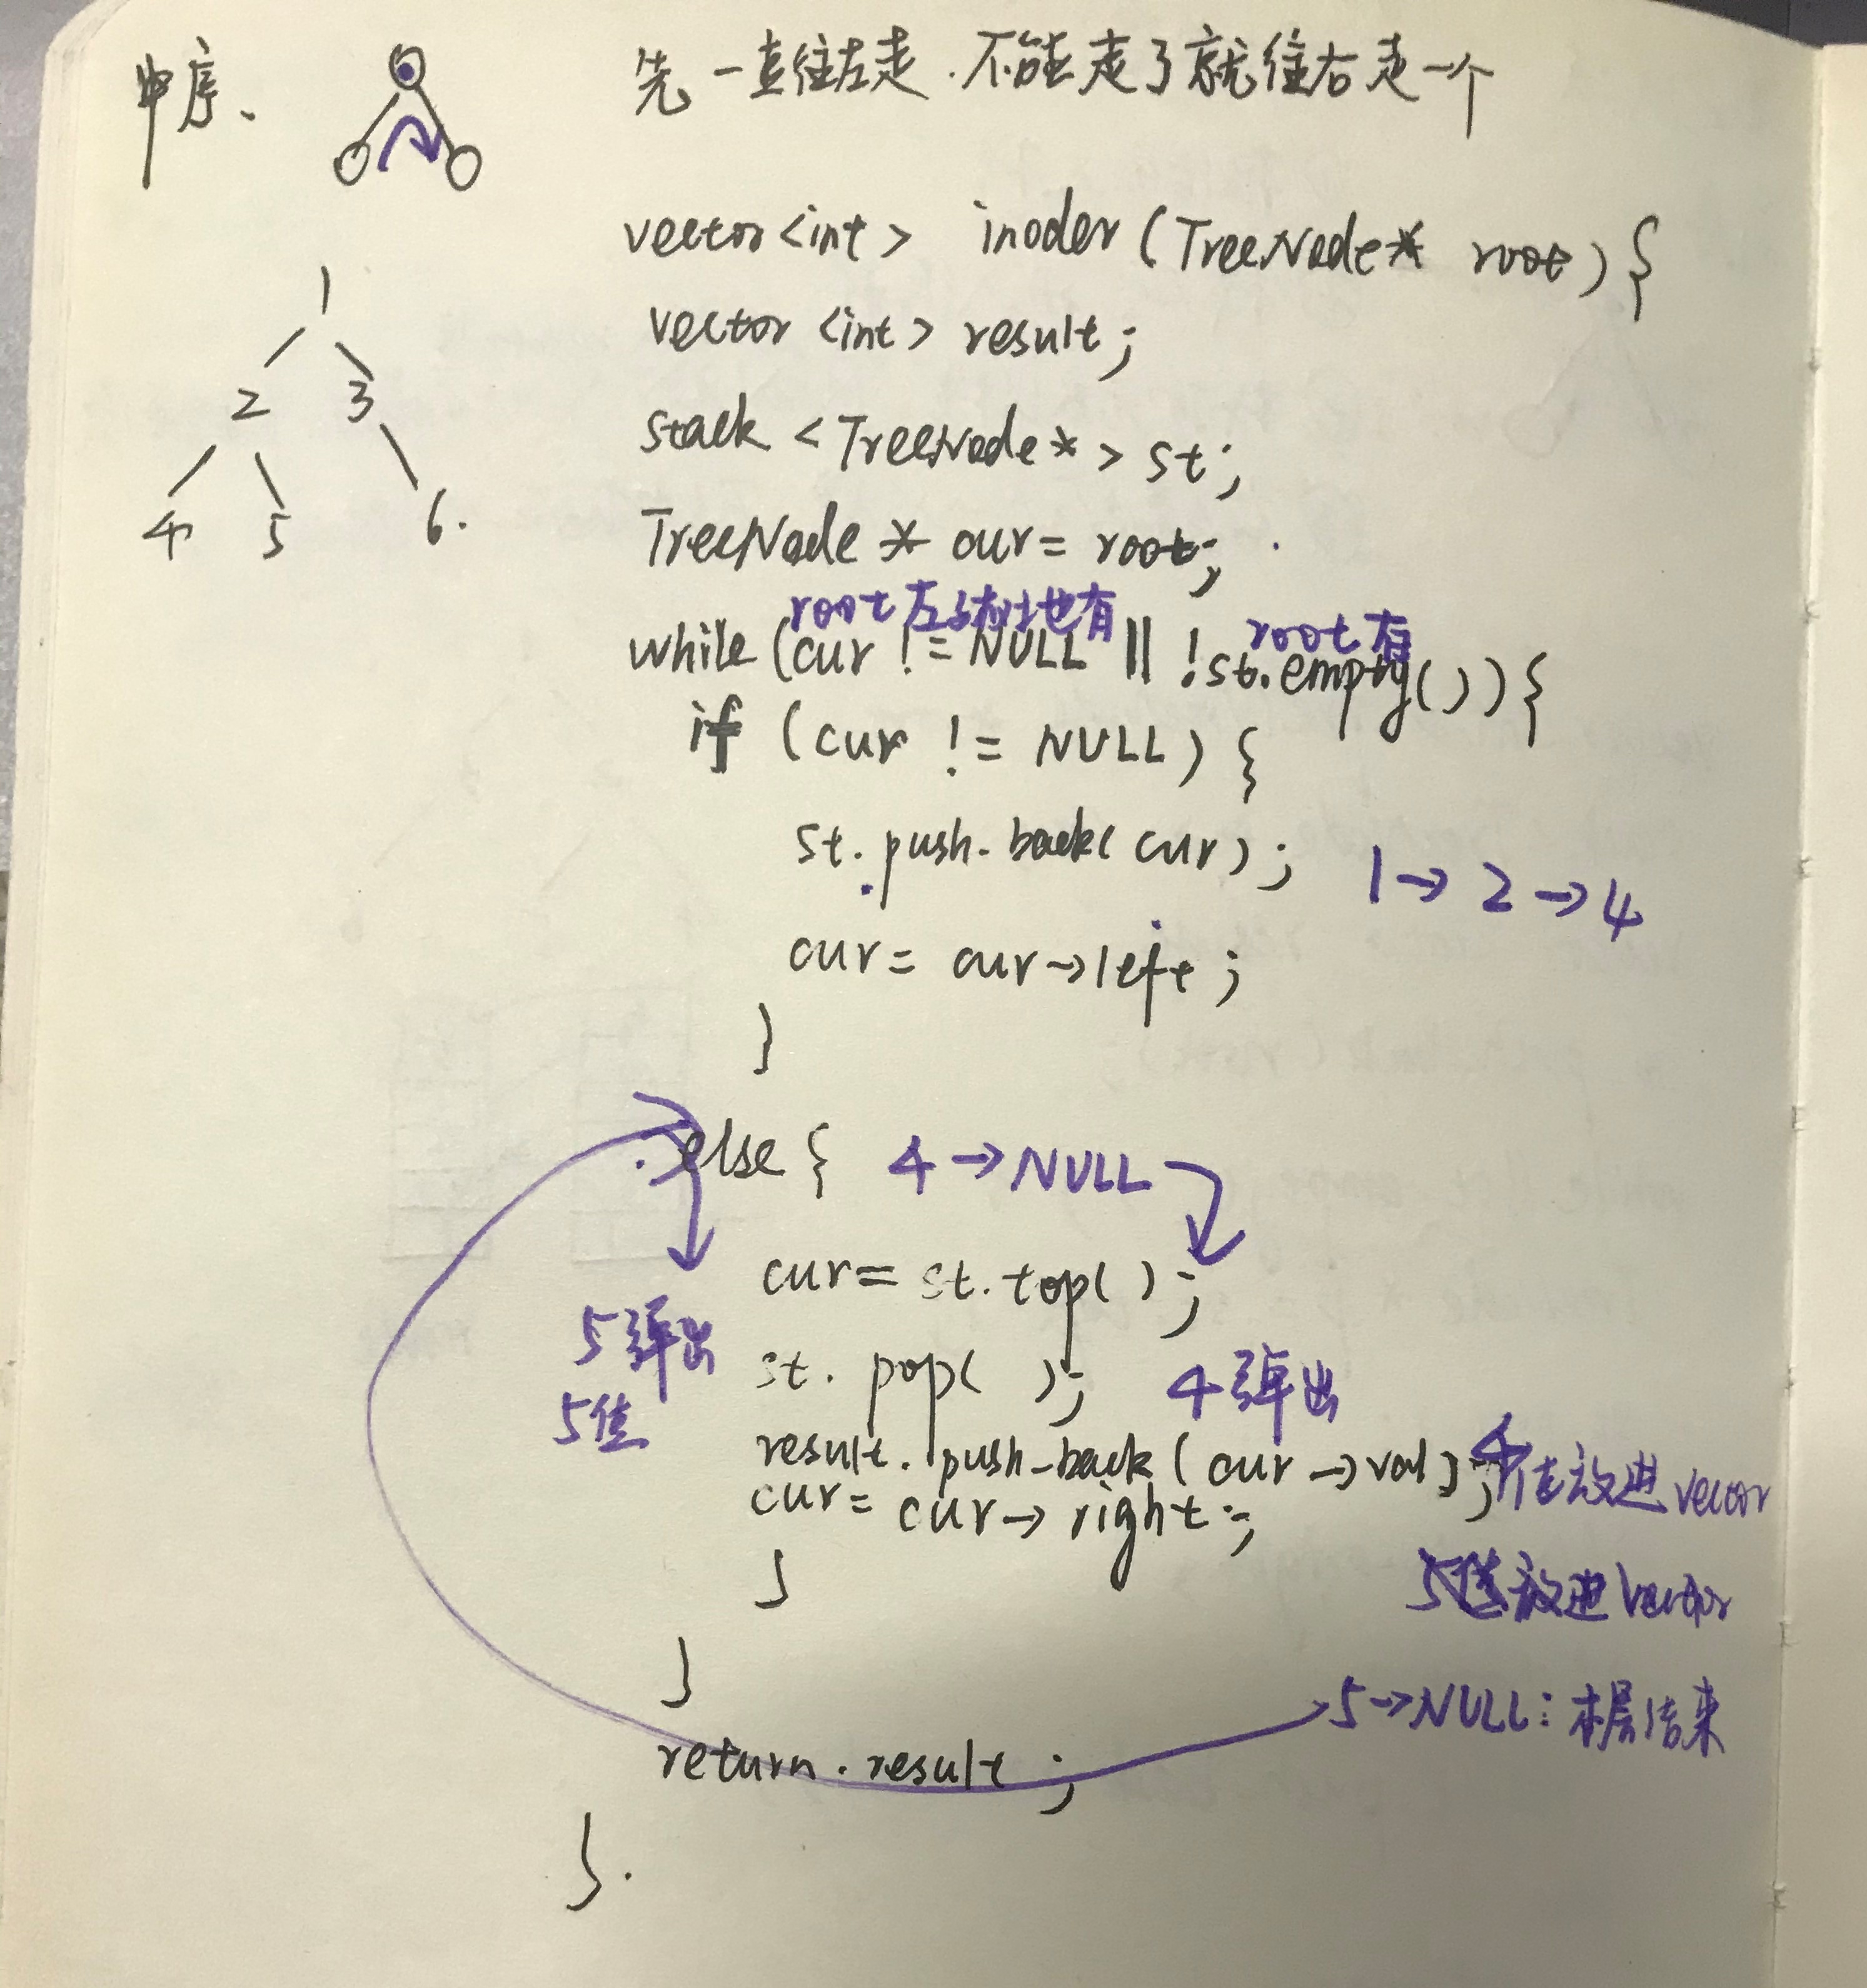 中序、
先一直往左走.不能走了就往右走一个
vector<int> inoder(TreeNode* root){
1
2 3
4 5 6.
vector<int> result;
stack<TreeNode*> st;
TreeNode* cur = root;
root左子树也有 root有
while (cur != NULL || !st.empty()){
if (cur != NULL) {
st.push-back(cur); 1→2→4
cur = cur→left;
}
else { 4→NULL
cur = st.top();
5弹出
st.pop( ); 4弹出
5值
result.push-back(cur→val); 4值放进vector
cur = cur→right;
5值放进vector
}
}
5→NULL:本层结束
return result;
}.